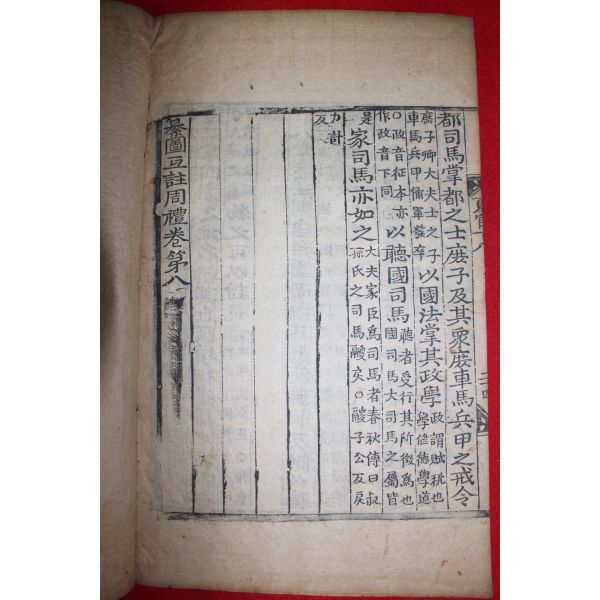 都司馬掌都之士庶子及其衆庶車馬兵甲之戒令
庶子卿大夫士之子
車馬兵甲備軍發卒
以國法掌其政學
政謂賦稅也
學脩德學道
○政音征本亦
作政音下同
以聽國司馬
聽者受行其所徵爲也
國司馬大司馬之屬皆
是
家司馬亦如之
大夫家臣爲司馬者春秋傳曰叔
孫氏之司馬鬷戾○鬷子公反戾
力計
反
纂圖互註周禮卷第八